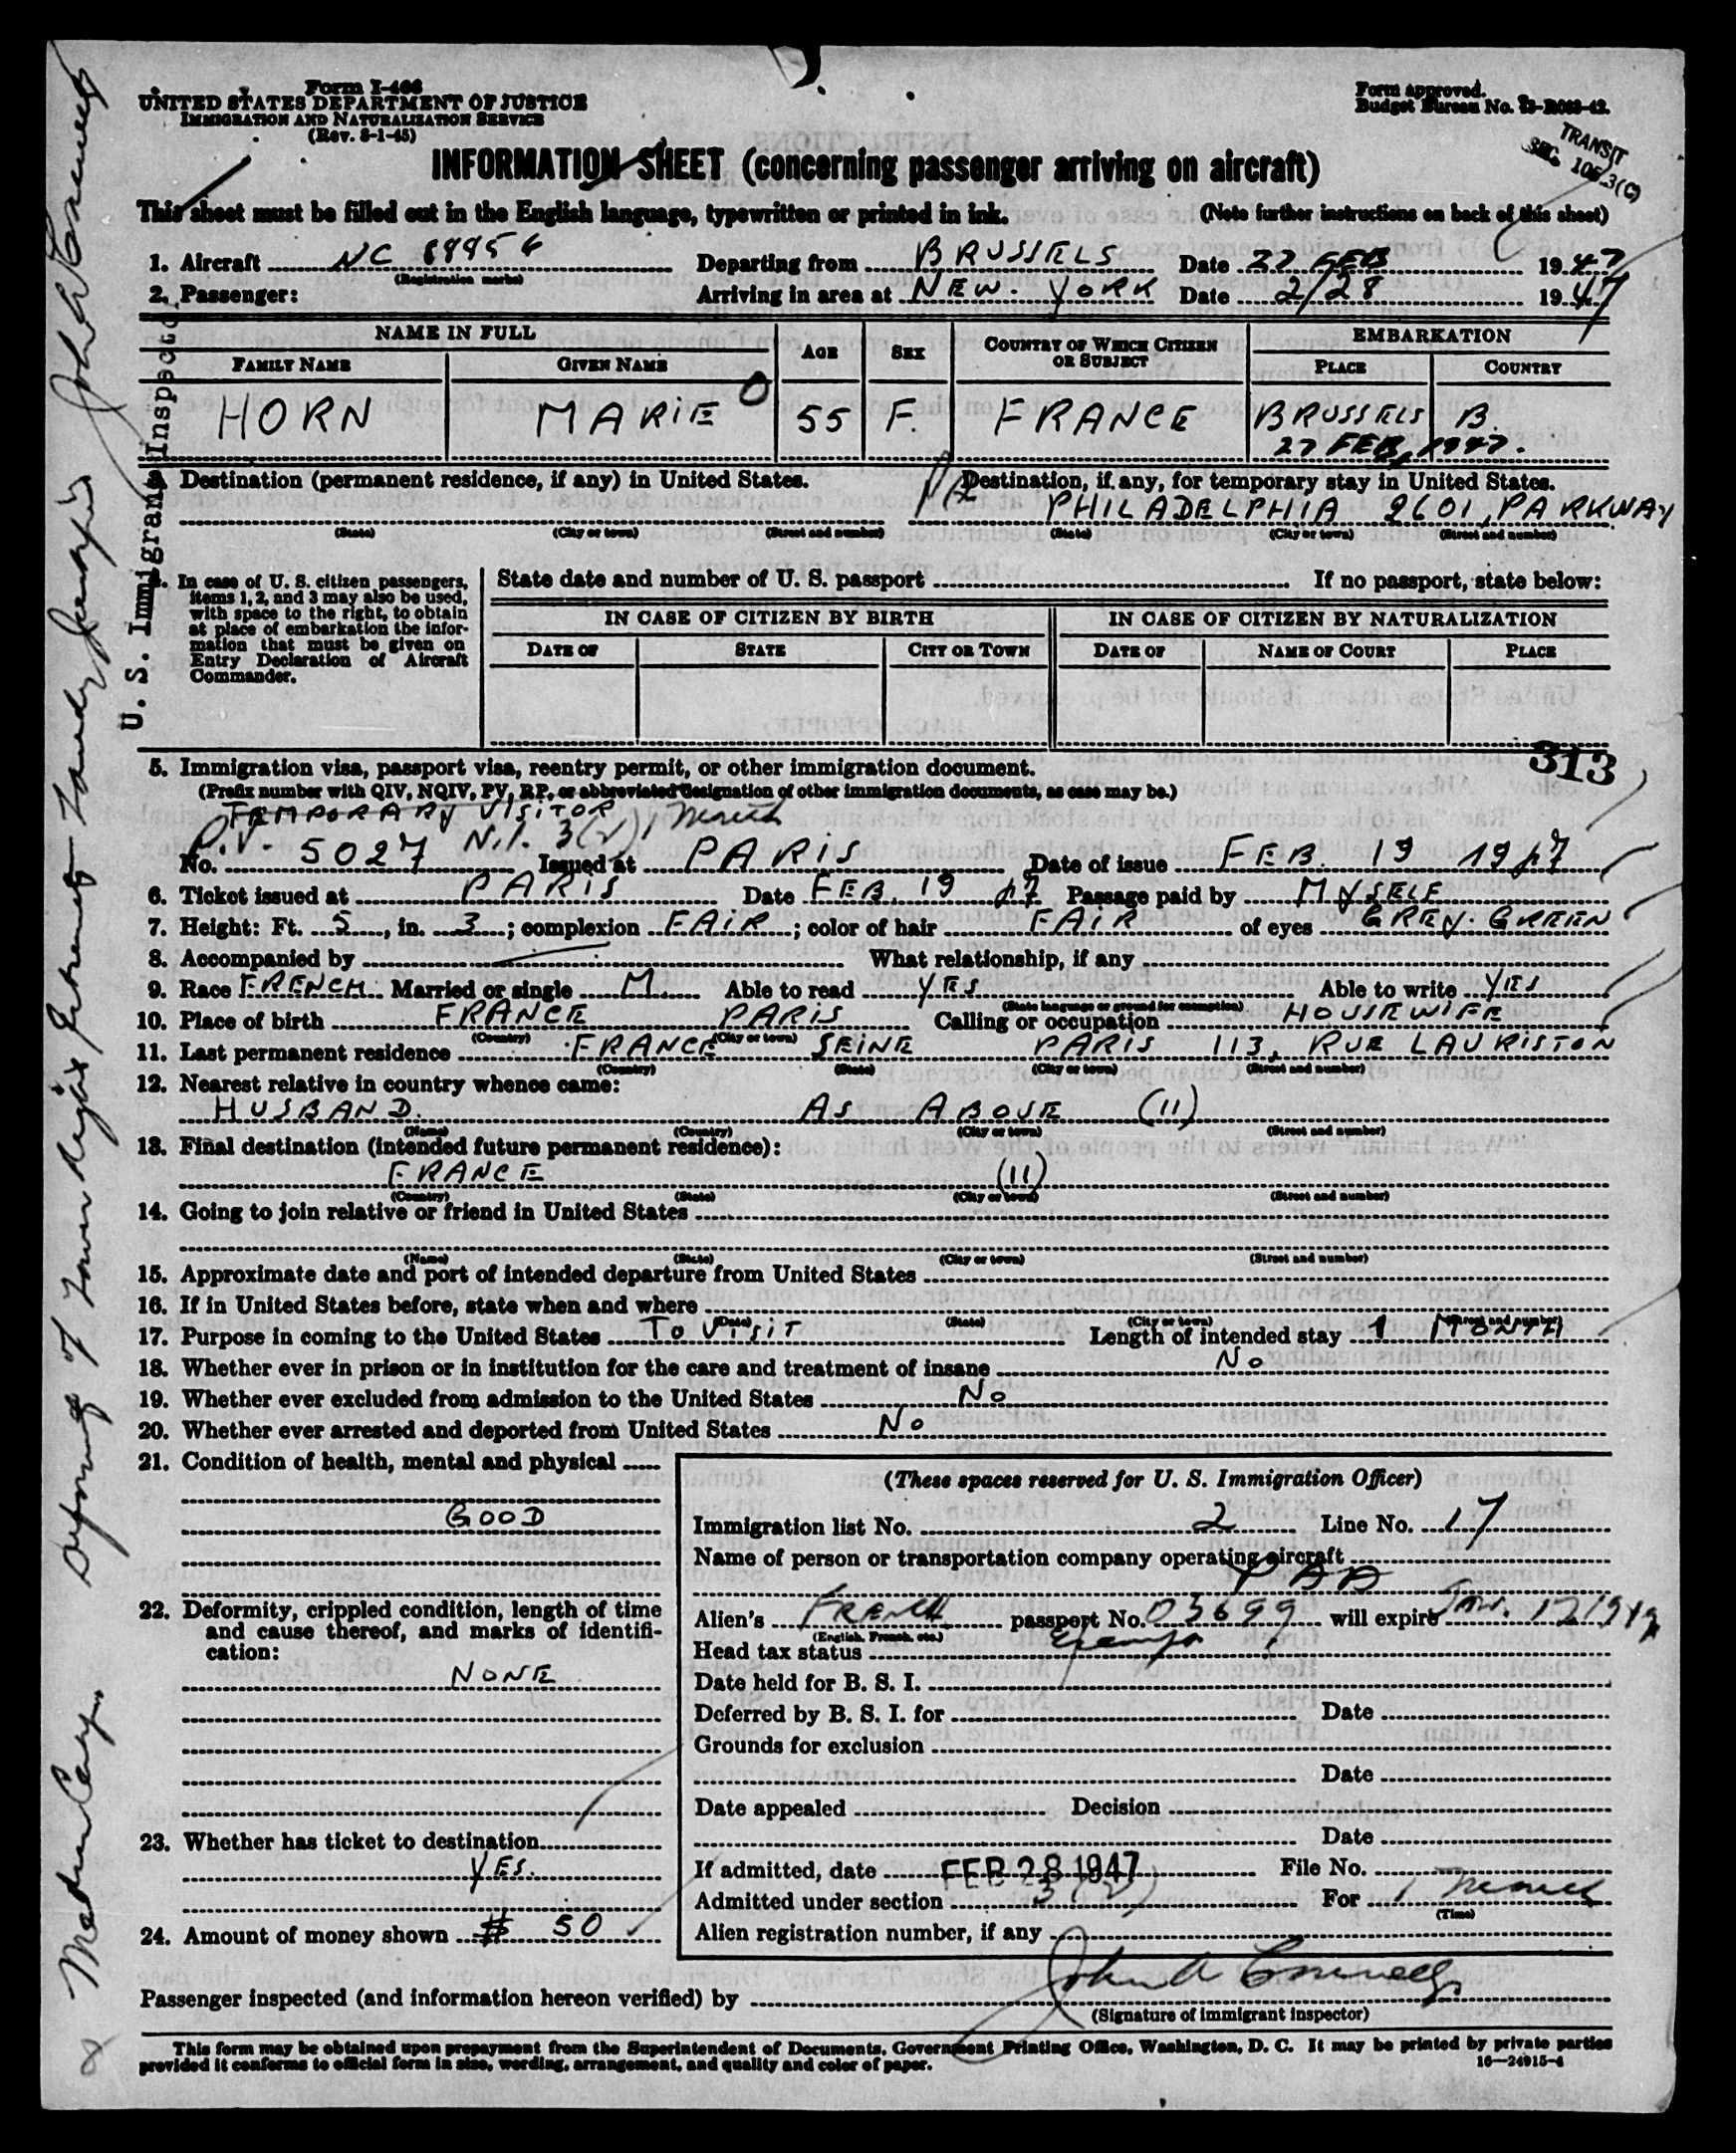 Form I-466
UNITED STATES DEPARTMENT OF JUSTICE
IMMIGRATION AND NATURALIZATION SERVICE
(Rev. 8-1-45)
Form approved.
Budget Bureau No.
TRANSIT
SEC.
INFORMATION SHEET (concerning passenger arriving on aircraft)
This sheet must be filled out in the English language, typewritten or printed in ink. (Note further instructions on back of this sheet)
1. Aircraft NC 88956 Departing from BRUSSELS Date 27 FEB 1947
(Registration marks)
2. Passenger: Arriving in area at NEW. YORK Date 2/28 1947
NAME IN FULL AGE SEX COUNTRY OF WHICH CITIZEN OR SUBJECT EMBARKATION
FAMILY NAME GIVEN NAME PLACE COUNTRY
HORN MARIE O 55 F. FRANCE BRUSSELS B.
27 FEB, 1947.
3. Destination (permanent residence, if any) in United States. Destination, if any, for temporary stay in United States.
PHILADELPHIA 2601, PARKWAY
(State) (City or town) (Street and number) (State) (City or town) (Street and number)
4. In case of U. S. citizen passengers, items 1, 2, and 3 may also be used, with space to the right, to obtain at place of embarkation the information that must be given on Entry Declaration of Aircraft Commander.
State date and number of U. S. passport If no passport, state below:
IN CASE OF CITIZEN BY BIRTH IN CASE OF CITIZEN BY NATURALIZATION
DATE OF STATE CITY OR TOWN DATE OF NAME OF COURT PLACE
313
5. Immigration visa, passport visa, reentry permit, or other immigration document.
(Prefix number with QIV, NQIV, PV, RP, or abbreviated designation of other immigration documents, as case may be.)
TEMPORARY VISITOR
P.V. N.I. 3(2) 1 Month
No. 5027 Issued at PARIS Date of issue FEB. 19 1947
6. Ticket issued at PARIS Date FEB. 19 47 Passage paid by MYSELF
7. Height: Ft. 5, in. 3; complexion FAIR; color of hair FAIR of eyes GREY. GREEN
8. Accompanied by What relationship, if any
9. Race FRENCH Married or single M. Able to read YES Able to write YES
(State language or ground for exemption)
10. Place of birth FRANCE PARIS Calling or occupation HOUSEWIFE
(Country) (City or town)
11. Last permanent residence FRANCE SEINE PARIS 113, RUE LAURISTON
(Country) (State) (City or town) (Street and number)
12. Nearest relative in country whence came:
HUSBAND. AS ABOVE (11)
(Name) (Country) (City or town) (Street and number)
13. Final destination (intended future permanent residence):
FRANCE (11)
(Country) (State) (City or town) (Street and number)
14. Going to join relative or friend in United States
(Name) (State) (City or town) (Street and number)
15. Approximate date and port of intended departure from United States
16. If in United States before, state when and where
(Date) (State) (City or town) (Street and number)
17. Purpose in coming to the United States TO VISIT Length of intended stay 1 MONTH
18. Whether ever in prison or in institution for the care and treatment of insane No
19. Whether ever excluded from admission to the United States No
20. Whether ever arrested and deported from United States No
21. Condition of health, mental and physical
GOOD
22. Deformity, crippled condition, length of time and cause thereof, and marks of identification:
NONE
23. Whether has ticket to destination
YES.
24. Amount of money shown $ 50
(These spaces reserved for U. S. Immigration Officer)
Immigration list No. 2 Line No. 17
Name of person or transportation company operating aircraft
PAA
Alien's FRENCH passport No. 05699 will expire JAN. 12 1949
(English, French, etc.)
Head tax status Exempt
Date held for B. S. I.
Deferred by B. S. I. for Date
Grounds for exclusion
Date
Date appealed Decision
Date
If admitted, date FEB 28 1947 File No.
Admitted under section 3(2) For 1 Month
(Time)
Alien registration number, if any
Passenger inspected (and information hereon verified) by
(Signature of immigrant inspector)
This form may be obtained upon prepayment from the Superintendent of Documents, Government Printing Office, Washington, D. C. It may be printed by private parties
provided it conforms to official form in size, wording, arrangement, and quality and color of paper. 16—24915-4
U. S. Immigrant Inspector